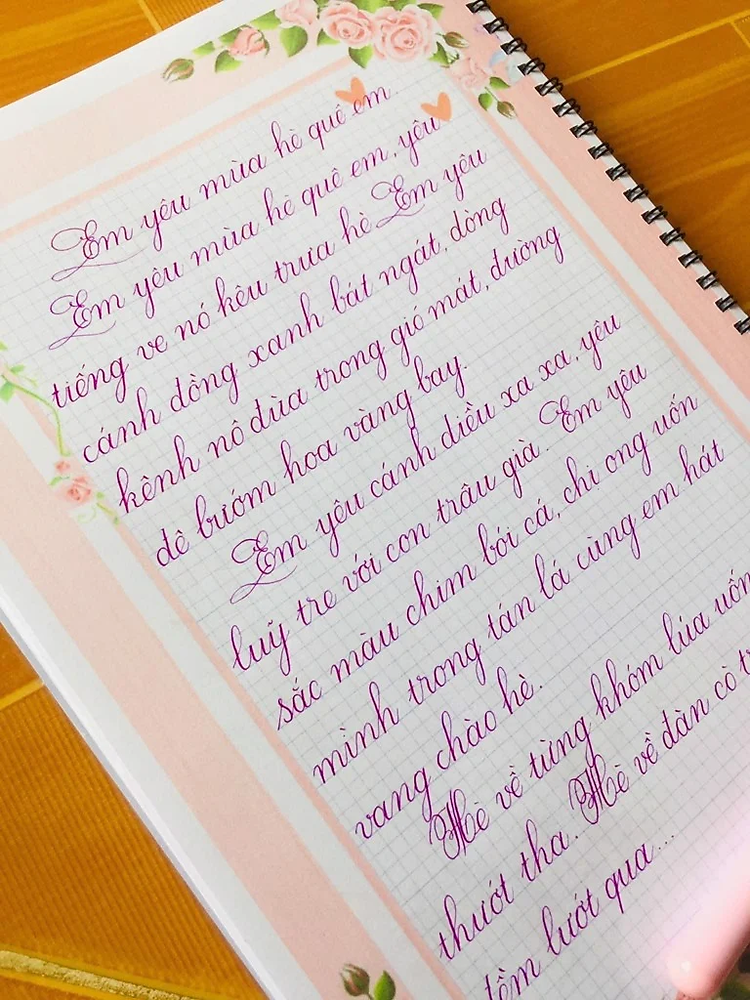 Em yêu mùa hè quê em.
Em yêu mùa hè quê em, yêu
tiếng ve nó kêu trưa hè. Em yêu
cánh đồng xanh bát ngát, dòng
kênh nô đùa trong gió mát, đường
đê bướm hoa vàng bay.
Em yêu cánh diều xa xa, yêu
luỹ tre với con trâu già. Em yêu
sắc màu chim bói cá, chị ong uốn
mình trong tán lá cùng em hát
vang chào hè.
Hè về từng khóm lúa uốn
thướt tha. Hè về đàn cò
lướt qua...